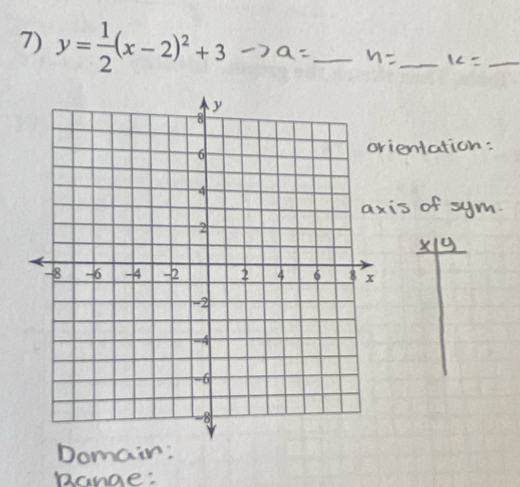 7) y = 1/2(x − 2)² + 3 -> a = __ h = __ k = __
y
8
6
4
2
-8 -6 -4 -2 2 4 6 8 x
-2
-4
-6
-8
orientation:
axis of sym.
x | y
Domain:
Range: